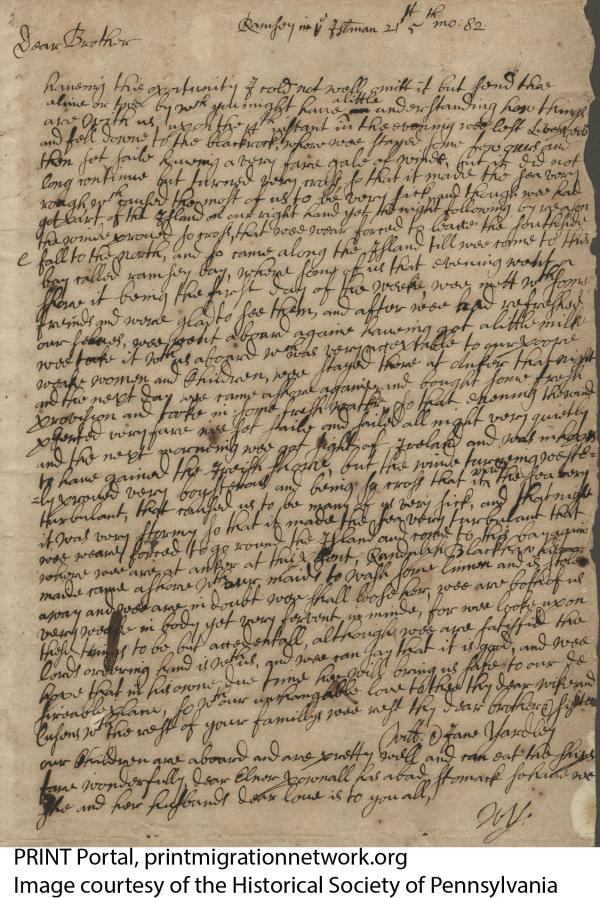 Ramsey in ye Isleman 21st 5th mo: 82
Dear Brother
haueing this oportunity I cold not well omitt it but send thee
aline or two by wch you might haue alittle understanding how things
are with us, upon the 4th instant in the evening wee left
and fell downe to the blackrock, where wee stayed some few ours and
then set saile haueing a very faire gale of winde, but it did not
long continue but turned very cross, so that it made the sea very
rough wch caused the most of us to be very sick, and though wee had
got part of the Island on our right hand yet the night following by reason
the winde proved so cross, that wee wear forced to leaue the southside
fall to the north, and so came along the Island till wee came to this
bay called ramsey bay, where some of us that evening went a
shore it being the first day of the weeke, wee mett with some
freinds and were glad to see them, and after wee had refreshed
our selues, wee went aboard againe haueing got alittle milk
wee tooke it with us aboard wch was very acceptable to our poore
weake women and Children, wee stayed there at anker that night
and the next day wee came ashore againe and bought some fresh
provision and tooke in some fresh watter, so that evening the wind
very faire wee set saile and sailed all night very quietly
and the next morning wee got sight of Ireland and was in hopes
to haue gained the Irish shore, but the winde turneing westE-
-ly proved very boysterous and being so cross that it made the sea very
turbulant, that caused us to be many of us very sick, and that night
it was very stormy so that it made the sea very turbulant that
wee weare forced to go round the Island and come to this bay againe
where wee are at anker at this point, Randulph Blackshaw
made came ashore with our maide to wash some linnen and is stole
away and wee are in doubt wee shall loose her, wee are both of us
very weake in body yet very fervent in minde, for wee looke upon
these things to be but accedentall, although wee are satisfied the
lords ordering hand is with us, and wee can say that it is good, and wee
hope that in his owne due time hee will bring us safe to our de
sireable place, so with our unchangable love to thee thy dear wife and
with the rest of your familly wee rest thy dear brother & sister
Will: & Jane Yardley
our Children are aboard and are pretty well and can eat the ships
fare wonderfully, dear Elner Pownall has abad stomack
shee and her husbands dear love is to you all,
WY.
PRINT Portal, printmigrationnetwork.org
Image courtesy of the Historical Society of Pennsylvania